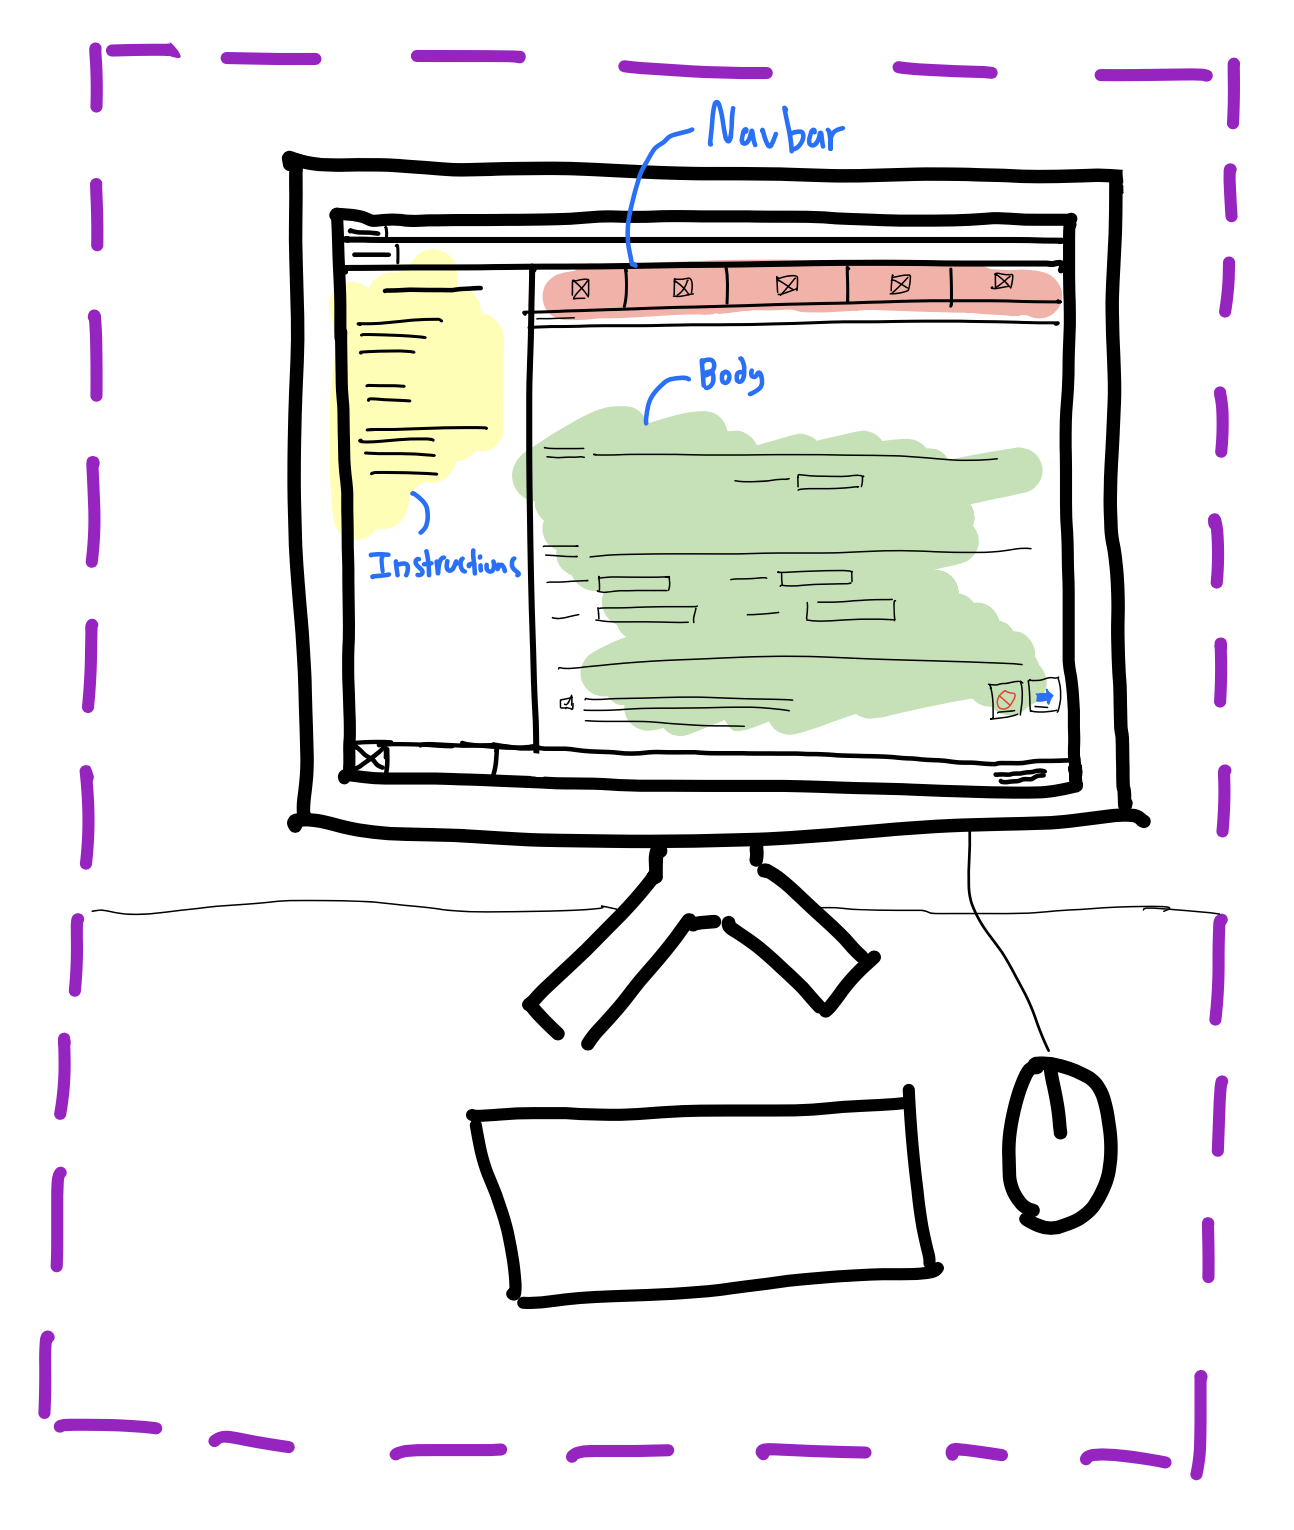 Navbar
Body
Instructions